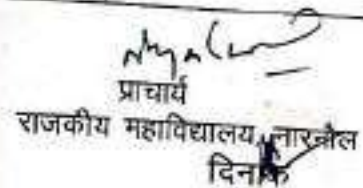 प्राचार्य
राजकीय महाविद्यालय, नारनौल
दिनांक